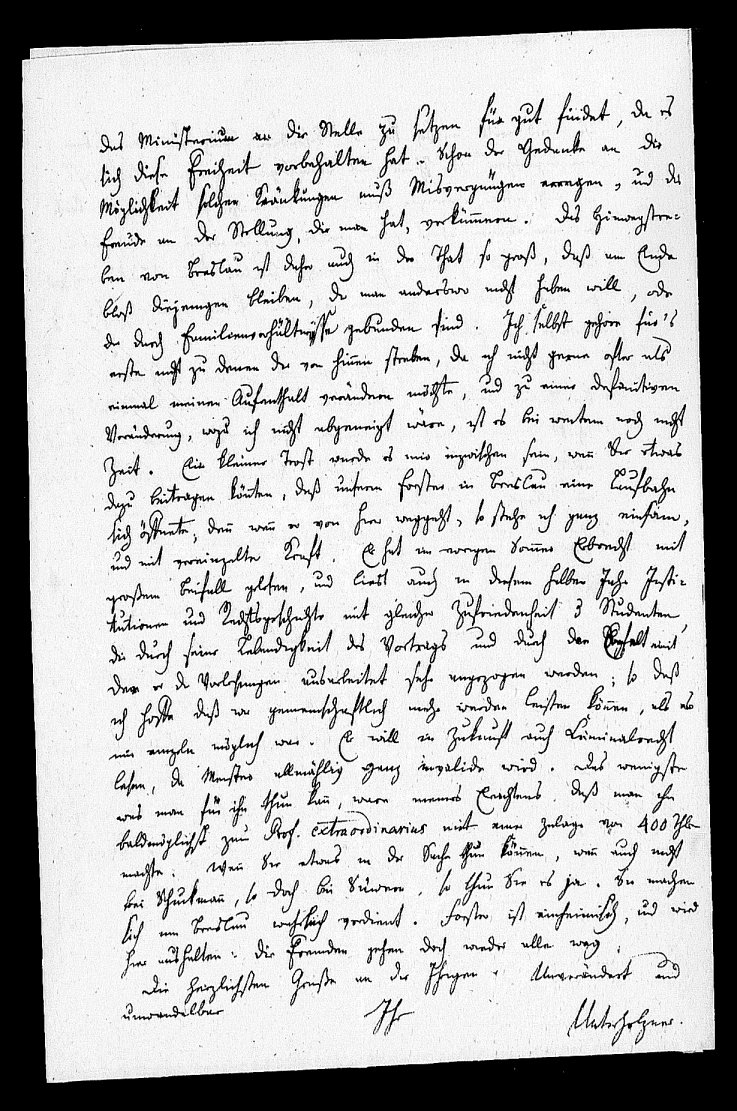 das Ministerium an die Stelle zu setzen für gut findet, da es
sich diese Freiheit vorbehalten hat. Schon der Gedanke an die
Möglichkeit solcher Kränkungen muß Misvergnügen erregen, und die
Freude an der Stellung, die man hat, verkümmern. Das Hinwegstre-
ben von Breslau ist daher auch in der That so groß, daß am Ende
bloß diejenigen bleiben, die man anderswo nicht haben will, oder
die durch Familienverhältnisse gebunden sind. Ich selbst gehöre für's
erste nicht zu denen die von hinnen streben, da ich nicht gerne öfter als
einmal meinen Aufenthalt verändern möchte, und zu einer definitiven
Veränderung, wozu ich nicht abgeneigt wäre, ist es bei weitem noch nicht
Zeit. Ein kleiner Trost würde es mir inzwischen sein, wenn Sie etwas
dazu beitragen könten, daß unserm Forster in Breslau eine Laufbahn
sich öffnete; denn wenn er von hier weggeht, so stehe ich ganz einsam,
und mit vereinzelter Kraft. Er hat im vorigen Sommer Erbrecht mit
großem Beifall gelesen, und liest auch in diesem halben Jahr Insti-
tutionen und Rechtsgeschichte mit gleicher Zufriedenheit d Studenten,
die durch seine Lebendigkeit des Vortrags und durch den mit
dem er die Vorlesungen ausarbeitet sehr angezogen werden; so daß
ich hoffe daß wir gemeinschaftlich mehr werden leisten können, als es
mir einzeln möglich war. Er will in Zukunft auch Criminalrecht
lesen, da Meister allmählig ganz invalide wird. Das wenigste
was man für ihn thun kan, wäre meines Erachtens, daß man ihn
baldmöglichst zum Prof. extraordinarius mit einer Zulage von 400 Thlr
machte. Wenn Sie etwas in der Sache thun können, wenn auch nicht
bei Schuckmann, so doch bei Süvern, so thun Sie es ja. Sie machen
sich um Breslau wahrlich verdient. Forster ist einheimisch, und wird
hier aushalten: die Fremden gehen doch wieder alle weg.
Die herzlichsten Grüße an die Ihrigen. Unverändert und
unwandelbar Ihr Unterholzner.